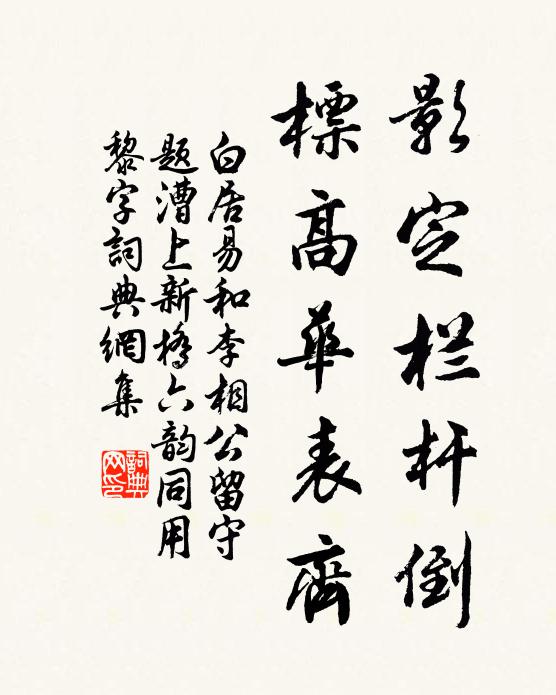 影定栏杆倒
標高華表齊
白居易和李相公留守
题漕上新橋六韵同用
黎字詞典網集
詞典
网印